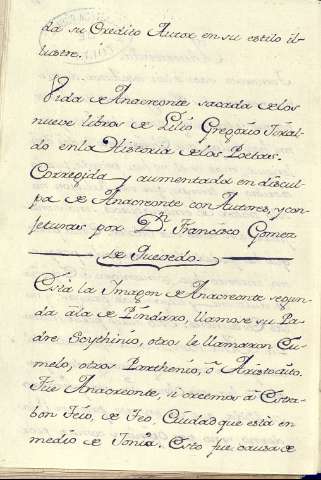 da su Credito Autor en su estilo il-
lustre.
Vida de Anacreonte sacada de los
nueve libros de Lilio Gregorio Jiral-
do en la Historia de los Poetas.
Corregida y aumentada en discul-
pa de Anacreonte con Autores, y con-
jeturas por Dn. Francisco Gomez
de Quevedo.
Está la Imagen de Anacreonte segun-
da á la de Pindaro, llamose su Pa-
dre Scythinio, otros le llamaron Cu-
melo, otros Parthenio, ó Aristocito.
Fue Anacreonte, si creemos á Estra-
bon Teio, de Teo, Ciudad que está en
medio de Jonia. Esto fue causa de